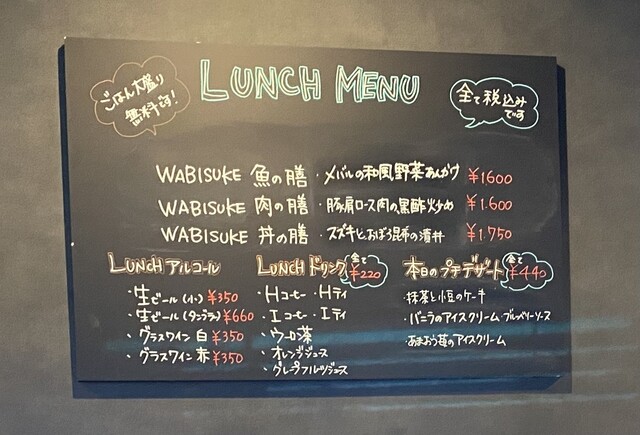 LUNCH MENU
ごはん大盛り
無料です!
全て税込み
です
WABISUKE 魚の膳 ・メバルの和風野菜あんかけ ¥1600
WABISUKE 肉の膳 ・豚肩ロース肉の黒酢炒め ¥1.600
WABISUKE 丼の膳 ・スズキとおぼろ昆布の漬丼 ¥1.750
LUNCH アルコール
・生ビール(小) ¥350
・生ビール(タンブラ) ¥660
・グラスワイン 白 ¥350
・グラスワイン 赤 ¥350
LUNCH ドリンク 全て ¥220
・Hコーヒー ・Hティ
・Iコーヒー ・Iティ
・ウーロン茶
・オレンジジュース
・グレープフルーツジュース
本日のプチデザート 全て ¥440
・抹茶と小豆のケーキ
・バニラのアイスクリーム ブルーベリーソース
・あまおう苺のアイスクリーム